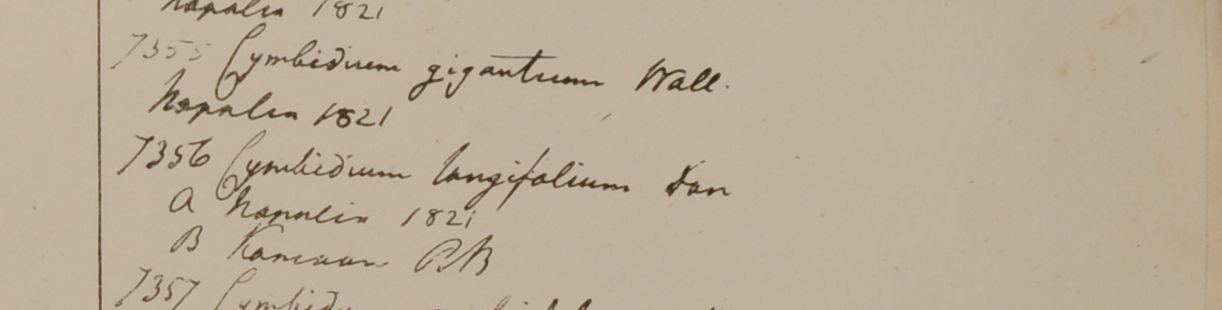 Napalia 1821
7355 Cymbidium giganteum Wall.
Napalia 1821
7356 Cymbidium longifolium Don
A Napalia 1821
B Kamaon RB
7357